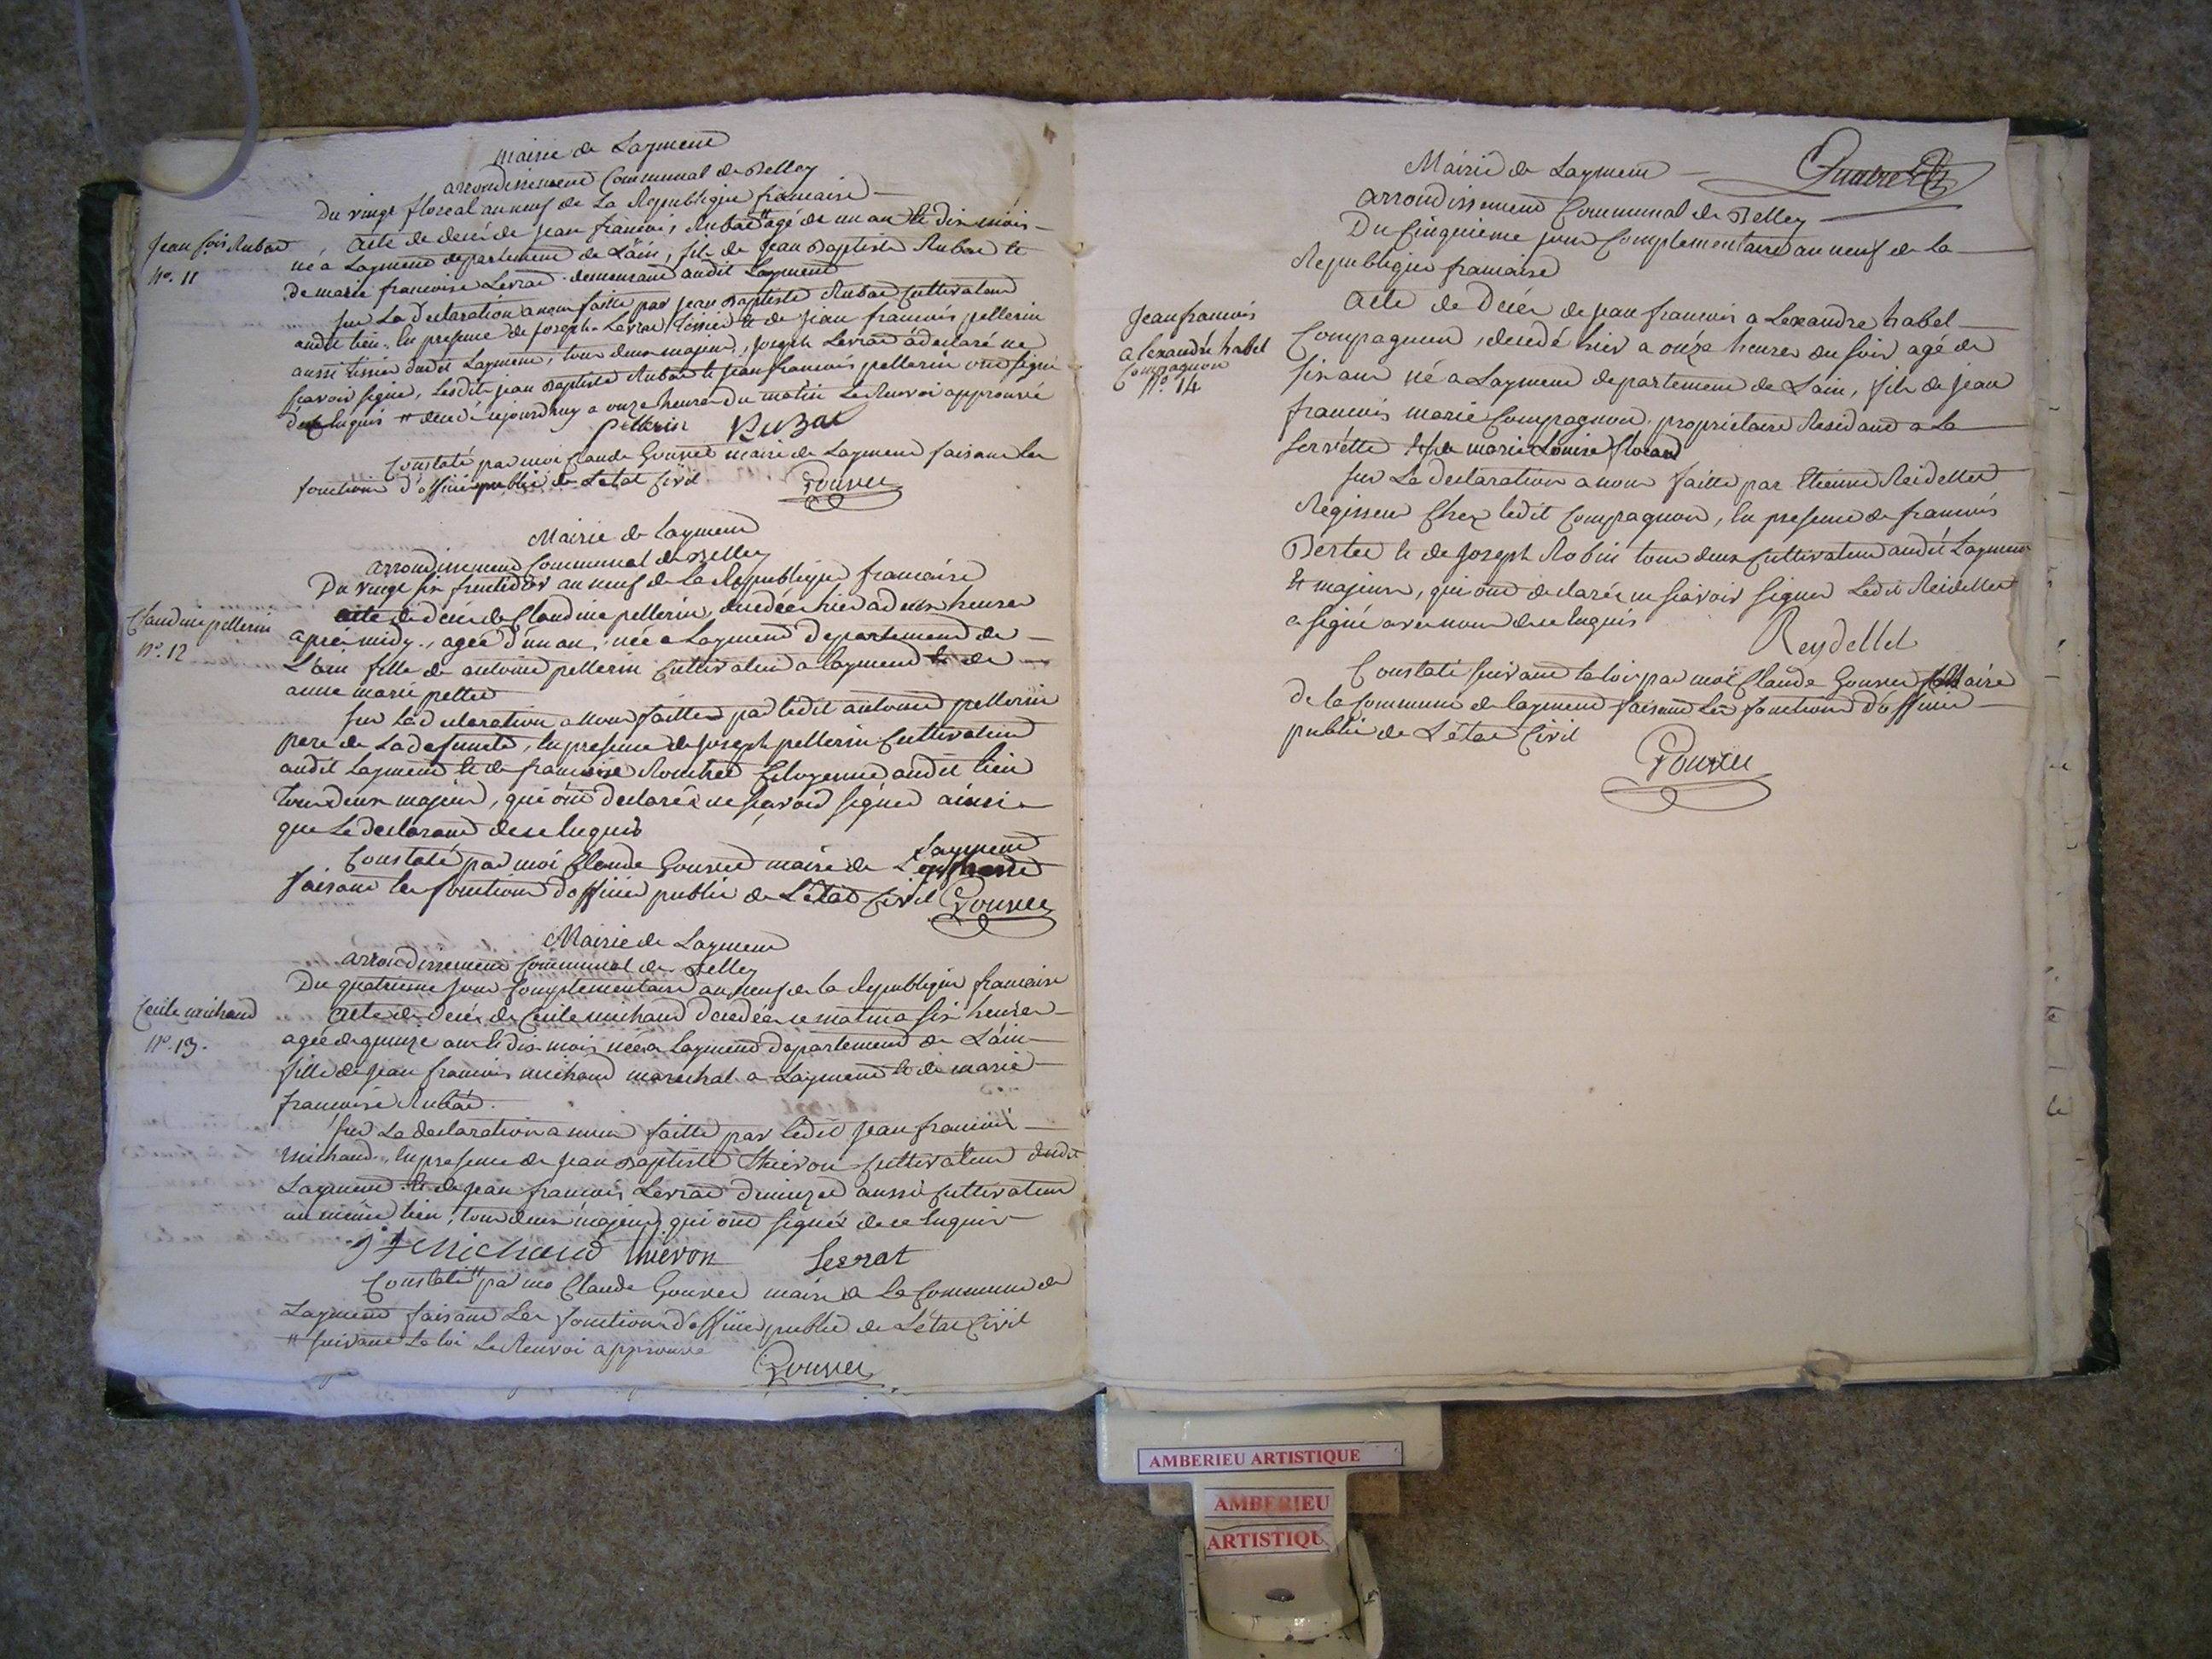 Mairie de Layment
arrondissement Communal de Belley
Du vingt floreal an neuf de La Republique francaise
Jean fois Rubat
N°. 11
Acte de decés de jean francois Rubat " agé de un an et dix mois
né a Layment departement de L'ain, fils de jean Baptiste Rubat et
de marie francoise Levrat demeurant audit Layment
sur La declaration a nous faitte par jean Baptiste Rubat Cultivateur
audit lieu. En presence de joseph Levrat tissier et de jean francois pellerin
aussi tissier dudit Layment, tous deux majeurs, joseph Levrat a declaré ne
scavoir signer, Lesdits jean Baptiste Rubat et jean francois pellerin ont signé
de ce Enquis " decedé aujourd'huy a onze heures du matin Le Renvoi approuvé
pellerin RuBat
Constaté par moi Claude Gouvet maire de Layment faisant les
fonctions d'officier public de L'etat Civil Gouvet
Mairie de Layment
arrondissement Communal de Belley
Du vingt six fructidor an neuf de La Republique francaise
Claudine pellerin
N°. 12
acte de decés de Claudine pellerin, decedée hier a deux heures
aprés midy, agée d'un an, née a Layment Departement de
L'ain fille de antoine pellerin Cultivateur a Layment et de
anne marie pettet
sur La declaration a Nous faitte par ledit antoine pellerin
pere de La defunete, En presence de joseph pellerin Cultivateur
audit Layment et de francoise Citoyenne audit lieu
tous deux majeurs, qui ont declarés ne scavoir signer ainsi
que Le declarant de ce Enquis
Constaté par moi Claude Gouvet maire de Layment
faisant les fonctions d'officier public de L'etat Civil Gouvet
Mairie de Layment
arrondissement Communal de Belley
Du quatrieme jour Complementaire an Neuf de la Republique francaise
Cecile michaud
N°. 13.
Acte de Decés de Cecile michaud decedée ce matin a six heures
agée de quinze ans et dix mois née a Layment Departement de L'ain
fille de jean francois michaud marechal a Layment et de marie
francoise Rubat.
sur La declaration a nous faitte par ledit jean francois
michaud, En presence de jean Baptiste thievon Cultivateur dudit
Layment et de jean francois Levrat aussi Cultivateur
au meme lieu, tous deux majeurs qui ont signés de ce Enquis
Jf Michaud thievon Levrat
Constaté " par moi Claude Gouvet maire de La Commune de
Layment faisant Les fonctions d'officier public de L'etat Civil
" suivant La loi Le Renvoi approuvé
Gouvet
Mairie de Layment
arrondissement Communal de Belley
Du Cinquieme jour Complementaire an neuf de la
Republique francaise
Jean francois
alexandre habel
Compagnon
N°. 14
Acte de Decés de jean francois a Lexandre habel
Compagnon, decedé hier a onze heures du soir agé de
six ans né a Layment departement de L'ain, fils de jean
francois marie Compagnon proprietaire Residant a La
Servette et de marie Louise
sur La declaration a nous faitte par Etienne Reidellet
Regisseur Chez ledit Compagnon, En presence de francois
Bertet et de joseph Robin tous deux Cultivateurs audit Layment
et majeurs, qui ont declarés ne scavoir signer Ledit Reidellet
a signé avec nous de ce Enquis
Reydellet
Constaté suivant la loi par moi Claude Gouvet Maire
de la Commune de layment faisant Les fonctions d'officier
public de L'etat Civil
Gouvet
AMBERIEU ARTISTIQUE
AMBERIEU
ARTISTIQU